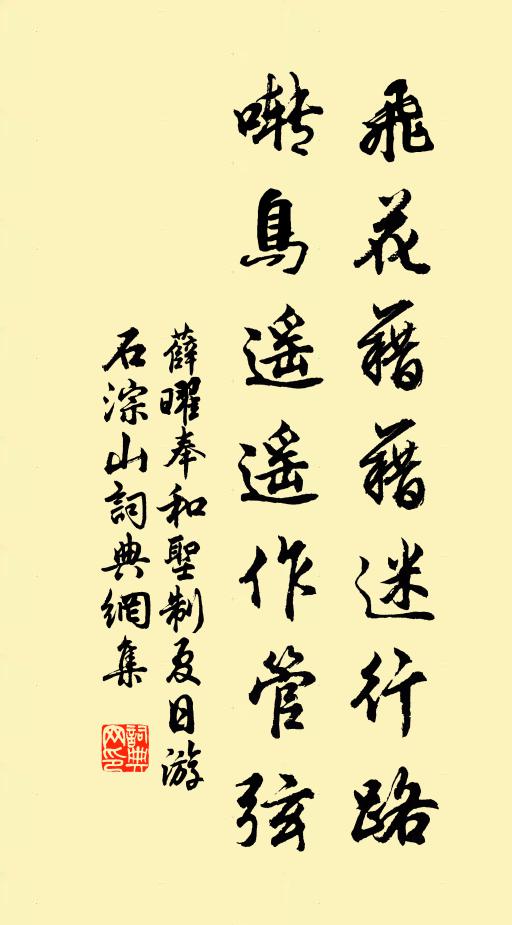 飛花藉藉迷行路
囀鳥遥遥作管弦
薛曜奉和聖制夏日游
石淙山詞典網集
詞典
网印